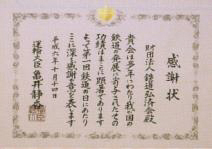 感謝状
財団法人 鉄道弘済会殿
貴会は多年にわたり我が国の
鉄道の発展に寄与されたその
功績はまことに顕著であります
よって第一回鉄道の日にあたり
ここに深く感謝の意を表します
平成六年十月十四日
運輸大臣 亀井静香